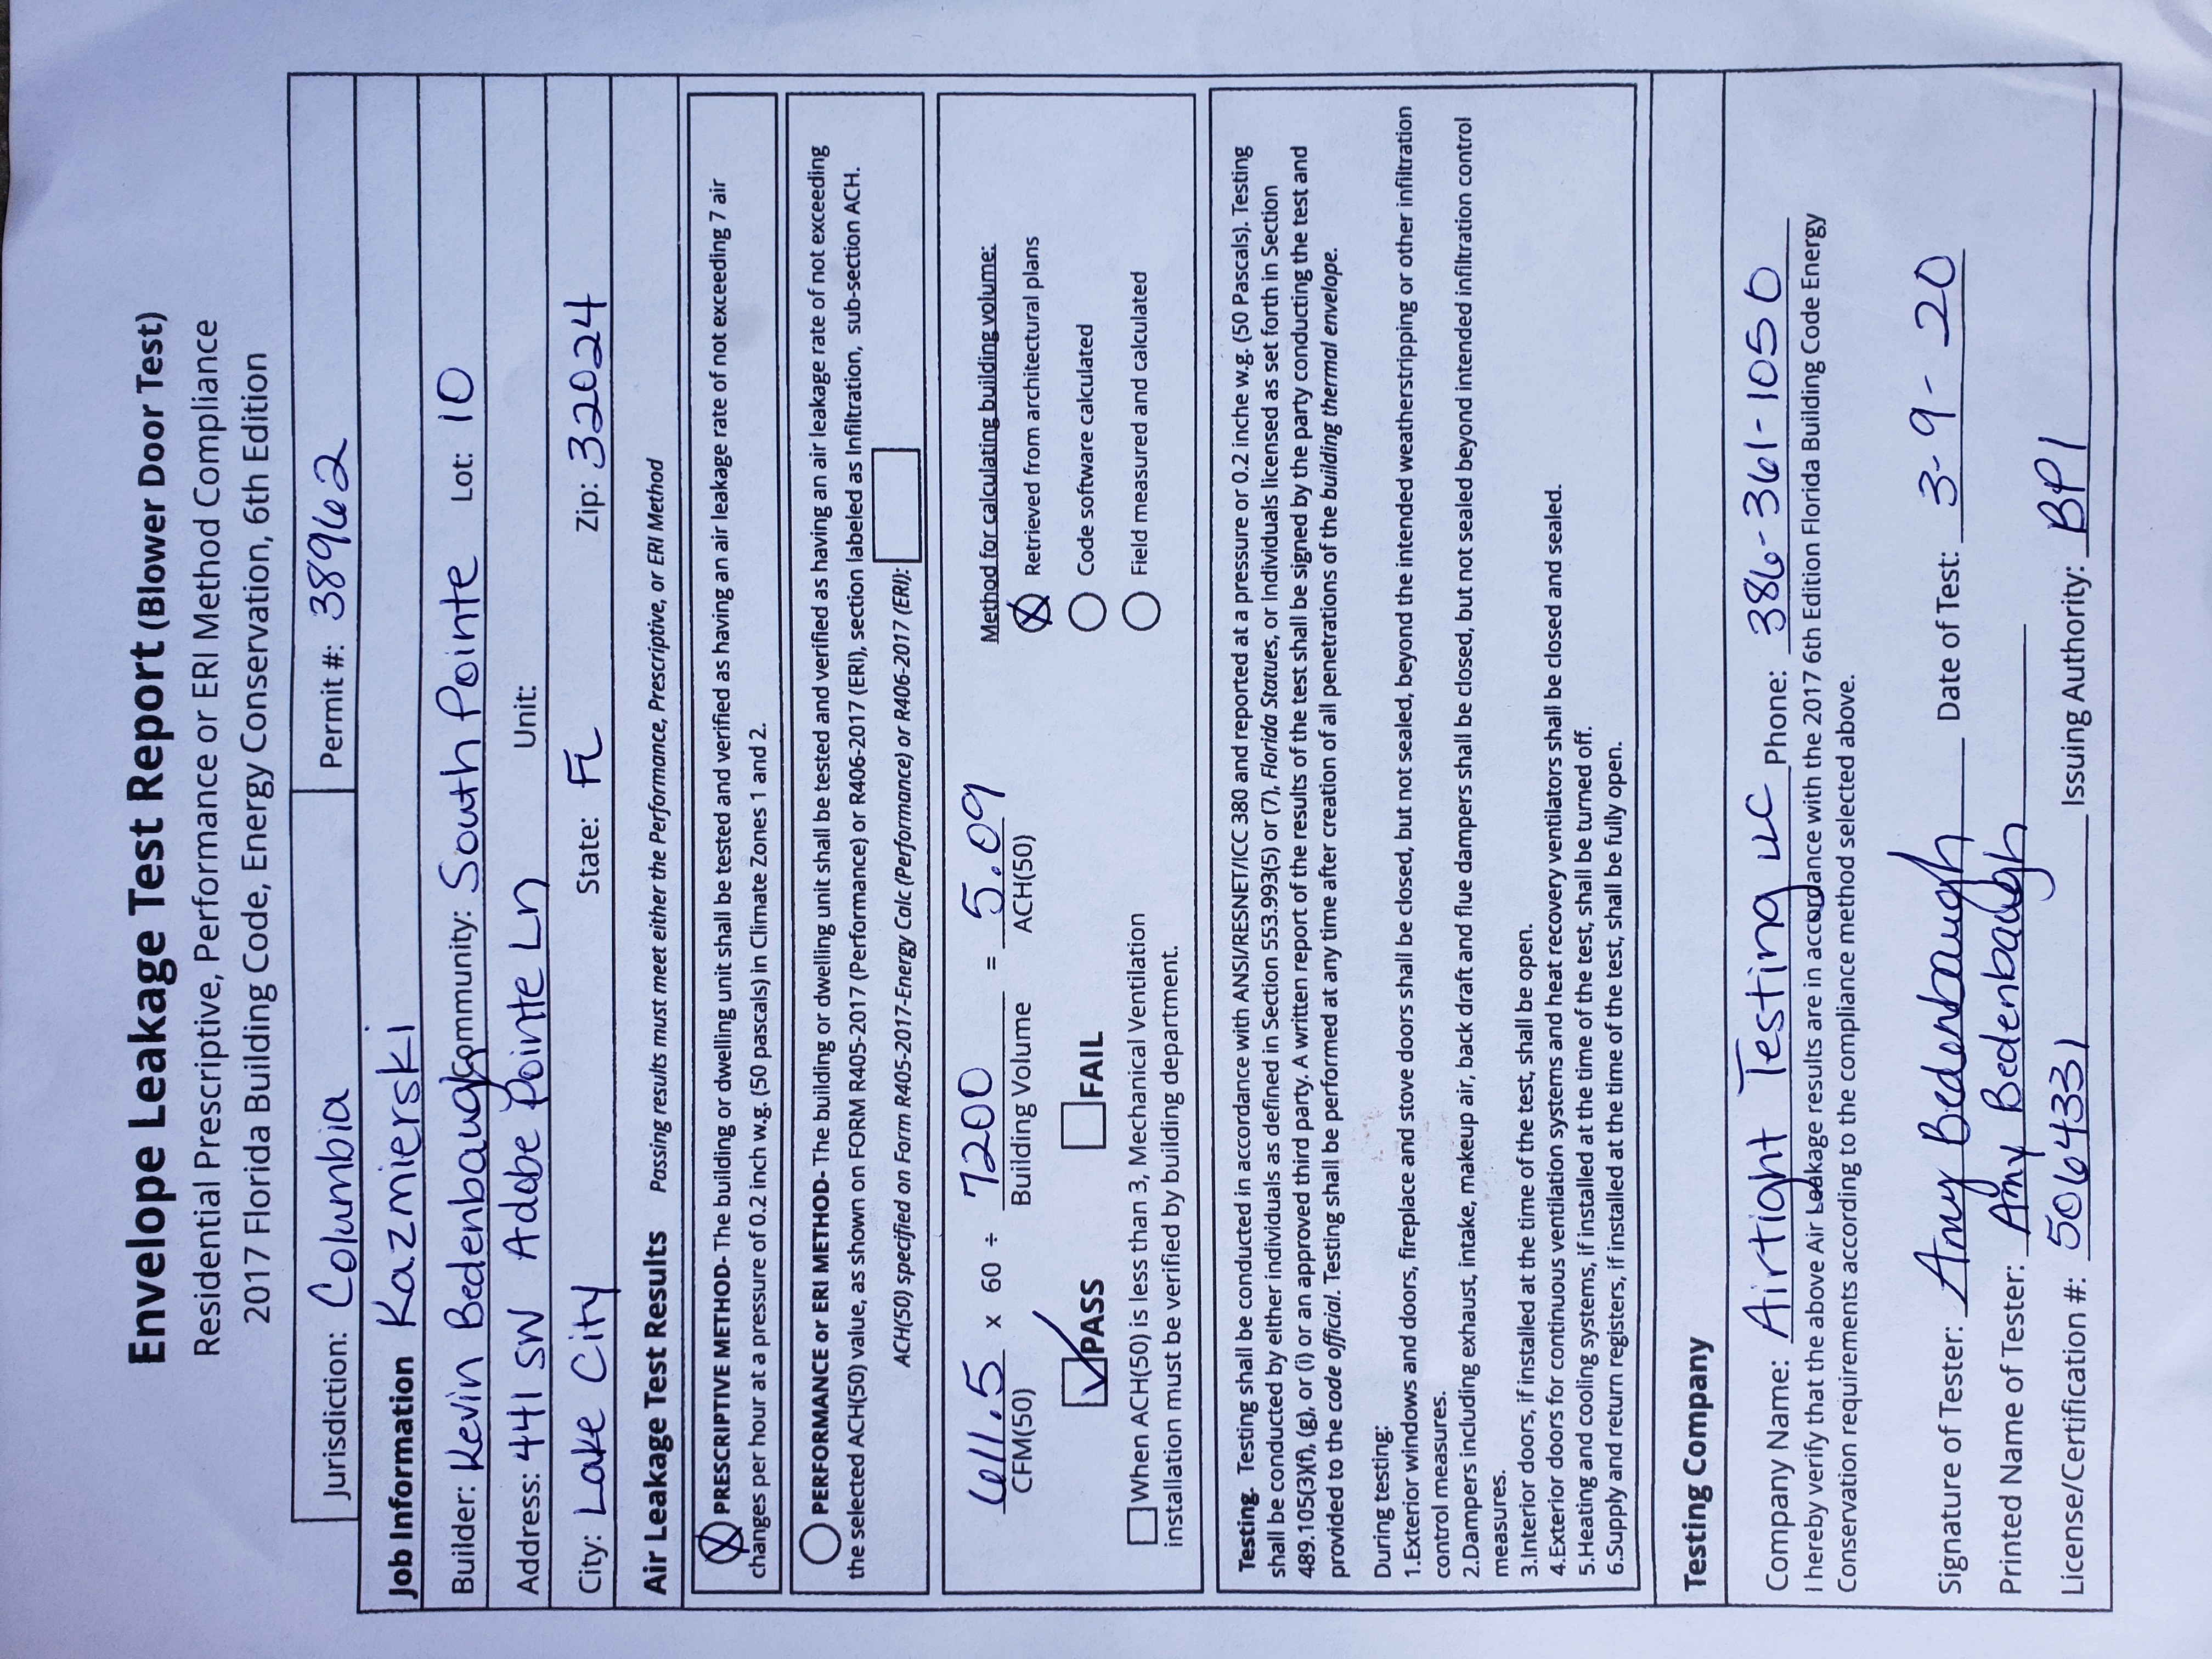 Envelope Leakage Test Report (Blower Door Test)
Residential Prescriptive, Performance or ERI Method Compliance
2017 Florida Building Code, Energy Conservation, 6th Edition
Jurisdiction: Columbia Permit #: 38962
Job Information Kazmierski
Builder: Kevin Bedenbaugh Community: South Pointe Lot: 10
Address: 441 SW Adobe Pointe Ln Unit:
City: Lake City State: FL Zip: 32024
Air Leakage Test Results Passing results must meet either the Performance, Prescriptive, or ERI Method
PRESCRIPTIVE METHOD- The building or dwelling unit shall be tested and verified as having an air leakage rate of not exceeding 7 air
changes per hour at a pressure of 0.2 inch w.g. (50 pascals) in Climate Zones 1 and 2.
PERFORMANCE or ERI METHOD- The building or dwelling unit shall be tested and verified as having an air leakage rate of not exceeding
the selected ACH(50) value, as shown on FORM R405-2017 (Performance) or R406-2017 (ERI), section labeled as Infiltration, sub-section ACH.
ACH(50) specified on Form R405-2017-Energy Calc (Performance) or R406-2017 (ERI):
611.5 x 60 ÷ 7200 = 5.09
CFM(50) Building Volume ACH(50)
PASS FAIL
When ACH(50) is less than 3, Mechanical Ventilation
installation must be verified by building department.
Method for calculating building volume:
Retrieved from architectural plans
Code software calculated
Field measured and calculated
Testing. Testing shall be conducted in accordance with ANSI/RESNET/ICC 380 and reported at a pressure or 0.2 inche w.g. (50 Pascals). Testing
shall be conducted by either individuals as defined in Section 553.993(5) or (7), Florida Statues, or individuals licensed as set forth in Section
489.105(3)(f), (g), or (i) or an approved third party. A written report of the results of the test shall be signed by the party conducting the test and
provided to the code official. Testing shall be performed at any time after creation of all penetrations of the building thermal envelope.
During testing:
1.Exterior windows and doors, fireplace and stove doors shall be closed, but not sealed, beyond the intended weatherstripping or other infiltration
control measures.
2.Dampers including exhaust, intake, makeup air, back draft and flue dampers shall be closed, but not sealed beyond intended infiltration control
measures.
3.Interior doors, if installed at the time of the test, shall be open.
4.Exterior doors for continuous ventilation systems and heat recovery ventilators shall be closed and sealed.
5.Heating and cooling systems, if installed at the time of the test, shall be turned off.
6.Supply and return registers, if installed at the time of the test, shall be fully open.
Testing Company
Company Name: Airtight Testing LLC Phone: 386-361-1050
I hereby verify that the above Air Leakage results are in accordance with the 2017 6th Edition Florida Building Code Energy
Conservation requirements according to the compliance method selected above.
Signature of Tester: Amy Bedenbaugh Date of Test: 3-9-20
Printed Name of Tester: Amy Bedenbaugh
License/Certification #: 5064331 Issuing Authority: BPI